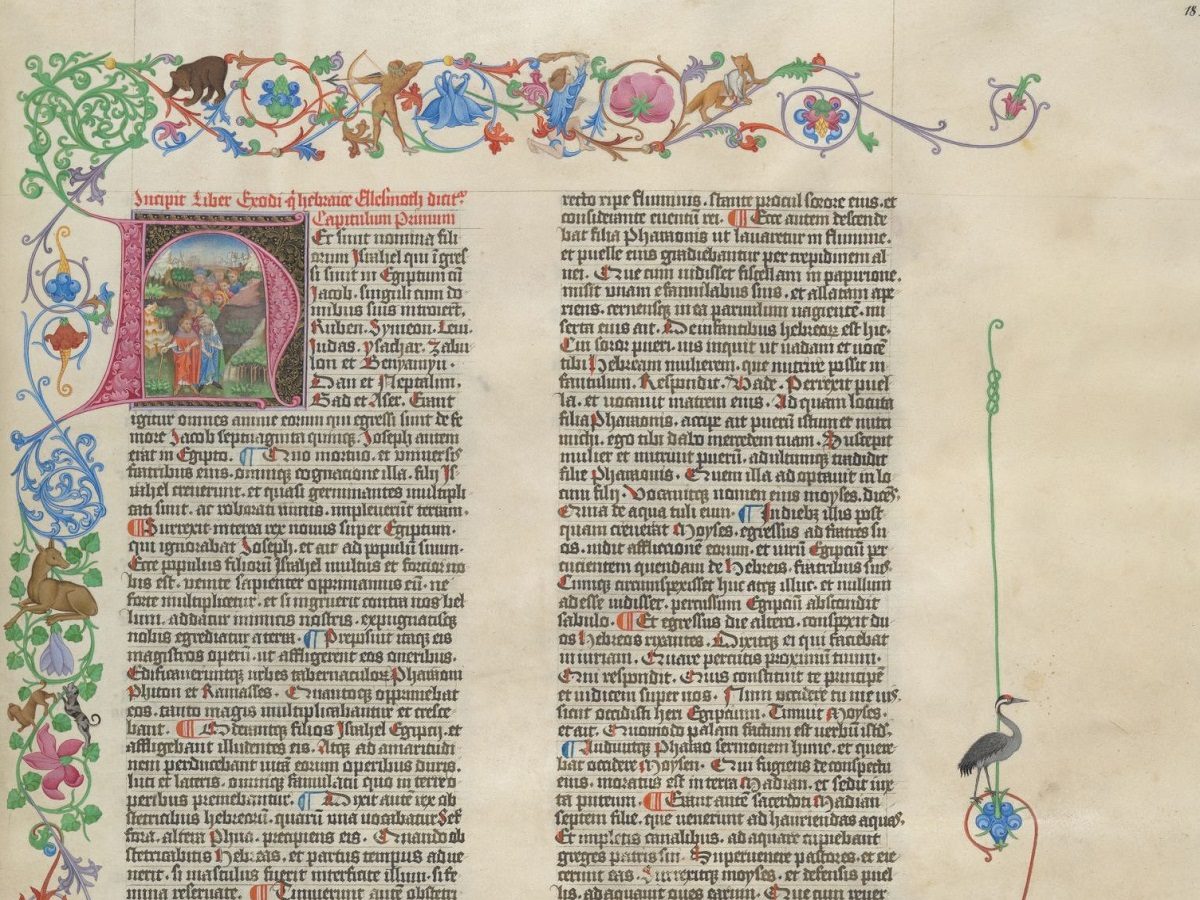 18
Incipit Liber Exodi q hebraice Ellesmoth dicit
Capitulum Primum
Ec sunt nomina fili
orum Israhel qui īgres
si sunt in Egiptum cū
Jacob. singuli cum do
mibus suis introierūt.
Ruben. Symeon. Leui
Judas. Ysachar. Zabu
lon et Beniamyn.
Dan et Neptalim.
Gad et Aser. Erant
igitur omnes anime eorum qui egressi sunt de fe
more Jacob septuaginta quinq;. Joseph autem
erat in Egipto. Quo mortuo, et vniuersis
fratribus eius. omniq; cognacione illa. filij Is
rahel creuerunt. et quasi germinantes multipli
cati sunt. ac roborati nimis. impleuerūt terram.
Surrexit interea rex nouus super Egiptum.
qui ignorabat Joseph. et ait ad populū suum.
Ecce populus filiorū Israhel multus et forcior no
bis est. venite sapienter opprimamus eū. ne
forte multiplicetur. et si ingruerit contra nos bel
lum. addatur inimicis nostris. expugnatisq;
nobis egrediatur a terra. Preposuit itaq; eis
magistros operū. ut affligerent eos oneribus.
Edificaueruntq; urbes tabernaculor Pharaoni
Phiton et Ramasses. Quantoq; opprimebāt
eos. tanto magis multiplicabantur et cresce
bant. Oderuntq; filios Israhel Egiptij. et
affligebant illudentes eis. Atq; ad amaritudi
nem perducebant uitā eorum operibus duris
luti et lateris. omniq; famulatu quo in terre o
peribus premebantur. Dixit autē rex ob
stetricibus hebreorū. quarū vna uocabatur Sef
fora. altera Phua. precipiens eis. Quando ob
stetricabitis Hebreas. et partus tempus adue
nerit. si masculus fuerit interficite illum. si fe
mina reseruate. Timuerunt autē obstetri
recto ripe fluminis. stante procul sorore eius. et
considerante euentū rei. Ecce autem descende
bat filia Pharaonis ut lauaretur in flumine.
et puelle eius gradiebantur per crepidinem al
uei. Que cum uidisset fiscellam in papirione.
misit vnam e famulabus suis. et allatam ape
riens. cernensq; in ea paruulum uagientē. mi
serta eius ait. De infantibus hebreor est hic.
Cui soror pueri. uis inquit ut uadam et uocē
tibi Hebream mulierem. que nutrire possit in
fantulum. Respondit. Vade. Perrexit puel
la. et uocauit matrem eius. Ad quam locuta
filia Pharaonis. accipe ait puerū istum et nutri
michi. ego tibi dabo mercedem tuam. Suscepit
mulier et nutriuit puerū. adultumq; tradidit
filie Pharaonis. Quem illa adoptauit in lo
cum filij. Vocauitq; nomen eius moyses. dicēs
Quia de aqua tuli eum. In dieb; illis post
quam creuerat Moyses. egressus ad fratres su
os. uidit afflictionē eorum. et uirū Egipciū per
cucientem quendam de Hebreis. fratribus suis
Cumq; circumspexisset huc atq; illuc. et nullum
adesse uidisset. percussum Egipciū abscondit
sabulo. Et egressus die altero. conspexit du
os Hebreos rixantes. Dixitq; ei qui faciebat
in iuriam. Quare percutis proximū tuum.
Qui respondit. Quis constituit te principē
et iudicem super nos. Num occidere tu me uis
sicut occidisti heri Egipcium. Timuit Moyses.
et ait. Quomodo palam factum est uerbū istd
Audiuitq; Pharao sermonem hunc. et quere
bat occidere Moysen. Qui fugiens de conspectu
eius. moratus est in terra Madian. et sedit iux
ta puteum. Erant autē sacerdoti Madian
septem filie. que uenerunt ad hauriendas aquas.
Et impletis canalibus. adaquare cupiebant
greges patris sui. Superuenere pastores. et eie
cerunt eas. Surrexitq; moyses. et defensis puel
lis. adaquauit oues earum. Que cum reuer